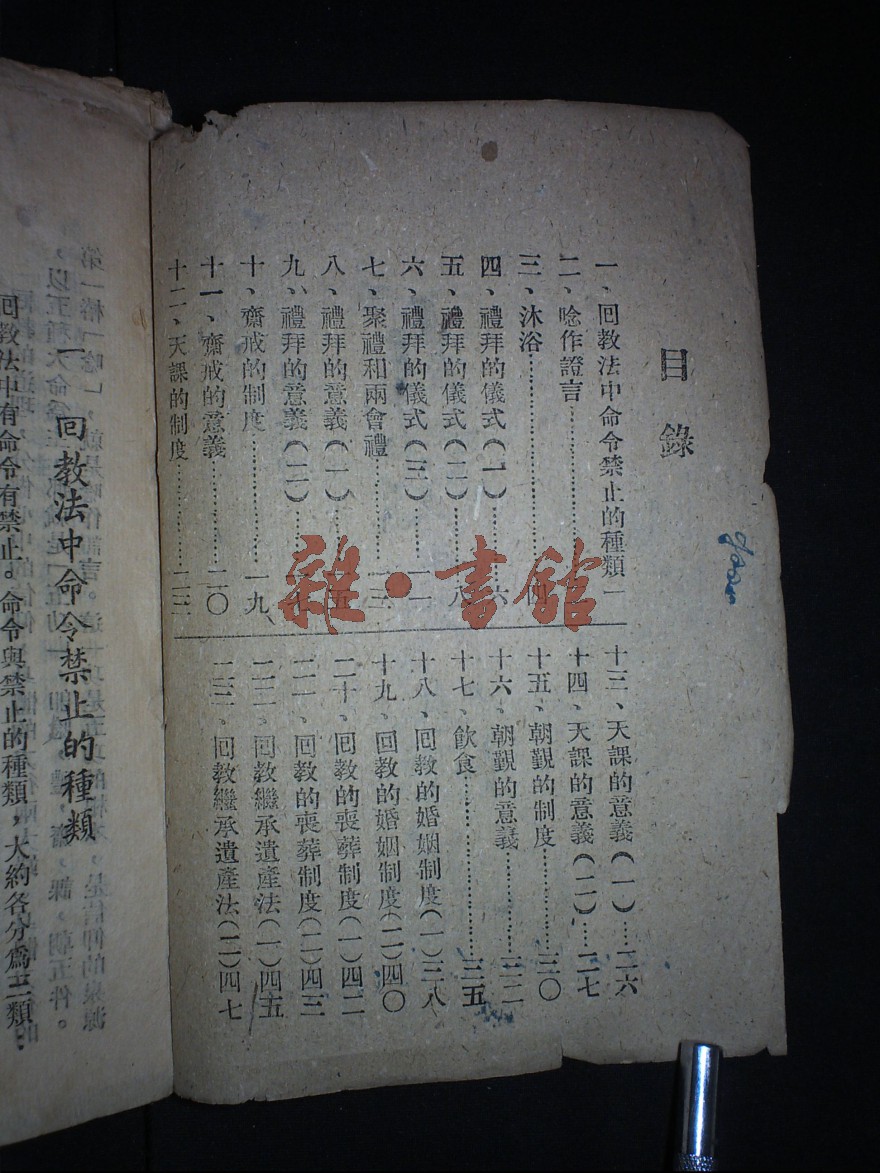 目錄
一、回教法中命令禁止的種類一
二、唸作證言
三、沐浴……四
四、禮拜的儀式(一)……六
五、禮拜的儀式(二)……八
六、禮拜的儀式(三)……一一
七、聚禮和兩會禮……一三
八、禮拜的意義(一)……一五
九、禮拜的意義(二)……一七
十、齋戒的制度……一九、
十一、齋戒的意義……二〇
十二、天課的制度……二三
十三、天課的意義(一)…二六
十四、天課的意義(二)…二七
十五、朝覲的制度……三〇
十六、朝覲的意義……三二
十七、飲食……三五
十八、回教的婚姻制度(一)三八
十九、回教的婚姻制度(二)四〇
二十、回教的喪葬制度(一)四二
二一、回教的喪葬制度(二)四三
二二、回教繼承遺產法(一)四五
二三、回教繼承遺產法(二)四七
雜·書館
一 回教法中命令禁止的種類
回教法中有命令有禁止。命令與禁止的種類，大約各分爲三類